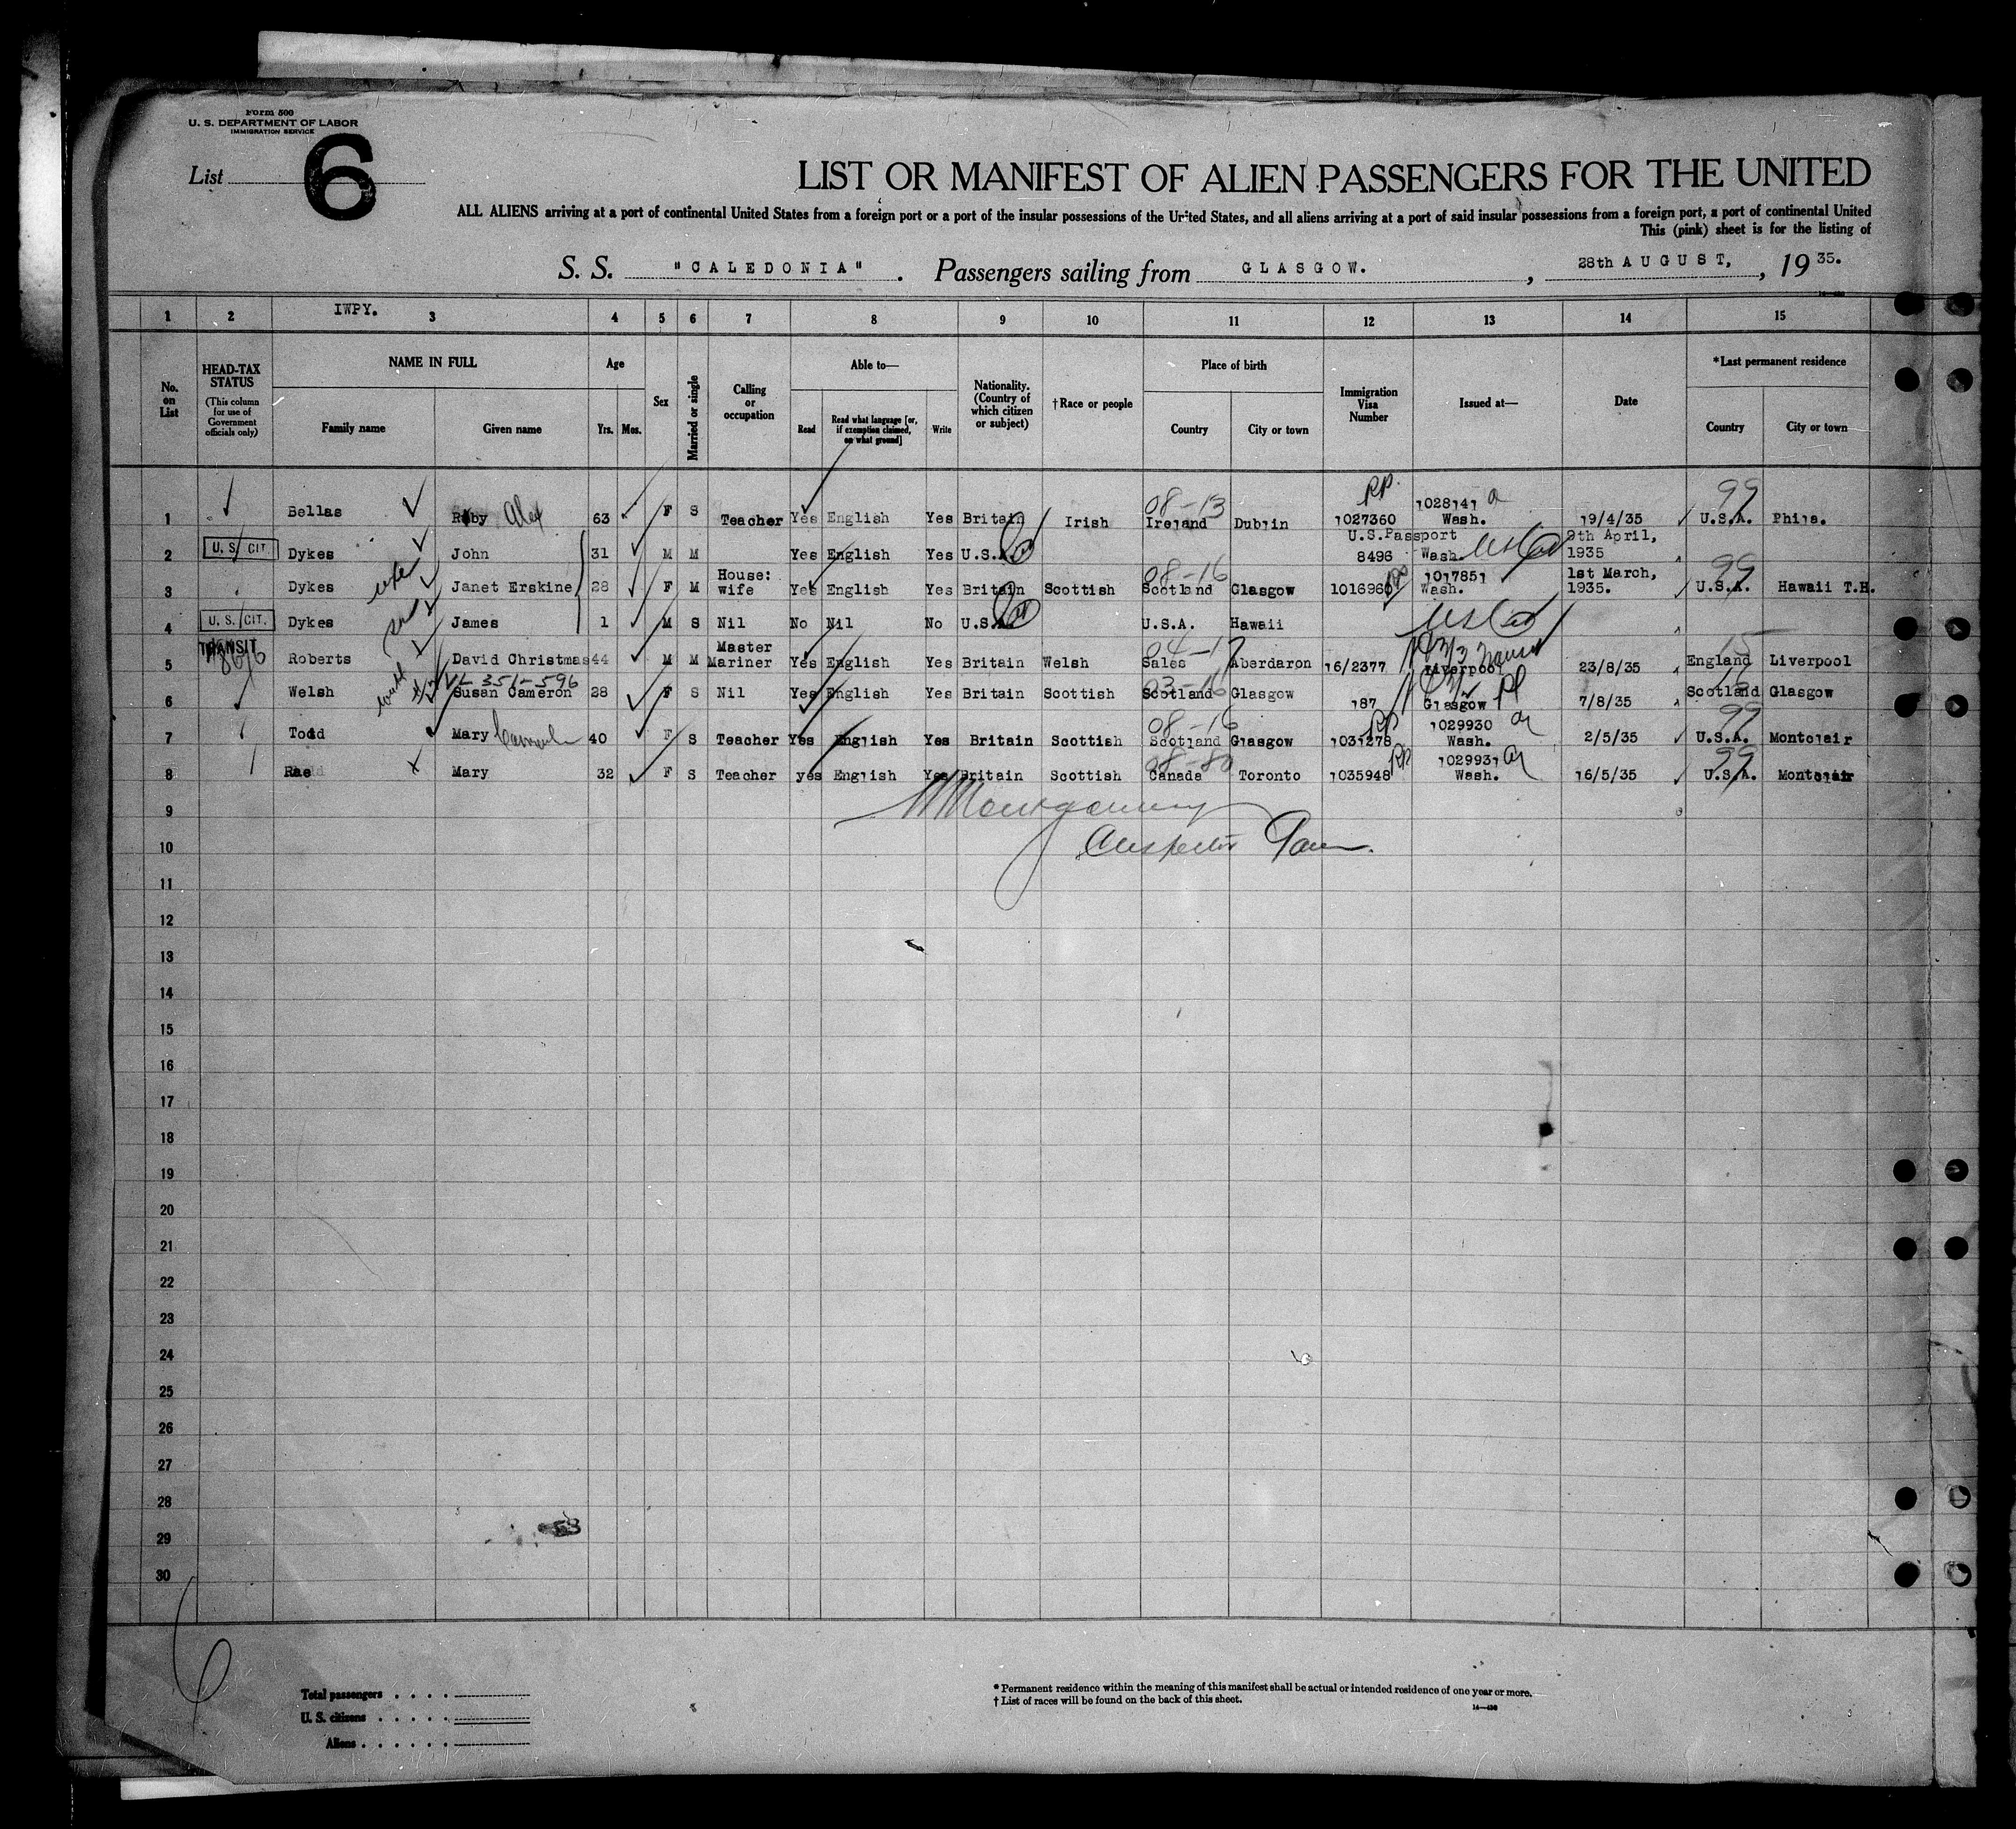 Form 500
U. S. DEPARTMENT OF LABOR
IMMIGRATION SERVICE
List 6
LIST OR MANIFEST OF ALIEN PASSENGERS FOR THE UNITED
ALL ALIENS arriving at a port of continental United States from a foreign port or a port of the insular possessions of the United States, and all aliens arriving at a port of said insular possessions from a foreign port, a port of continental United
This (pink) sheet is for the listing of
S. S. "CALEDONIA". Passengers sailing from GLASGOW. , 28th AUGUST, , 1935.
1 2 IWPY. 3 4 5 6 7 8 9 10 11 12 13 14 15
No. on List
HEAD-TAX STATUS
(This column for use of Government officials only)
NAME IN FULL
Family name Given name
Age
Yrs. Mos.
Sex
Married or single
Calling or occupation
Able to—
Read Read what language [or, if exemption claimed, on what ground] Write
Nationality. (Country of which citizen or subject)
†Race or people
Place of birth
Country City or town
Immigration Visa Number
Issued at—
Date
*Last permanent residence
Country City or town
RP 1028141 08-13 99
1 Bellas Alex 63 F S Teacher Yes English Yes Britain Irish Ireland Dublin 1027360 Wash. 19/4/35 U.S.A. Phila.
U.S.Passport 9th April,
2 U. S. CIT. Dykes John 31 M M Yes English Yes U.S.A. 8496 Wash. 1935
wife House: 08-16 1017851 1st March, 99
3 Dykes Janet Erskine 28 F M wife Yes English Yes Britain Scottish Scotland Glasgow 1016960 Wash. 1935. U.S.A. Hawaii T.H.
4 U. S. CIT. Dykes James 1 M S Nil No Nil No U.S.A. U.S.A. Hawaii
TRANSIT Master 04-17 15
5 Roberts David Christmas 44 M M Mariner Yes English Yes Britain Welsh Wales Aberdaron 16/2377 Liverpool 23/8/35 England Liverpool
VL 351-596 03-16 16
6 Welsh Susan Cameron 28 F S Nil Yes English Yes Britain Scottish Scotland Glasgow 187 Glasgow 7/8/35 Scotland Glasgow
08-16 RP 1029930 99
7 Todd Mary 40 F S Teacher Yes English Yes Britain Scottish Scotland Glasgow 1031278 Wash. 2/5/35 U.S.A. Montclair
08-80 RP 1029931 99
8 Rae Mary 32 F S Teacher yes English Yes Britain Scottish Canada Toronto 1035948 Wash. 16/5/35 U.S.A. Montclair
9 Montgomery
10 Inspector
11
12
13
14
15
16
17
18
19
20
21
22
23
24
25
26
27
28
29
30
6
Total passengers . . . .
U. S. citizens . . . . .
Aliens . . . . . .
* Permanent residence within the meaning of this manifest shall be actual or intended residence of one year or more.
† List of races will be found on the back of this sheet.